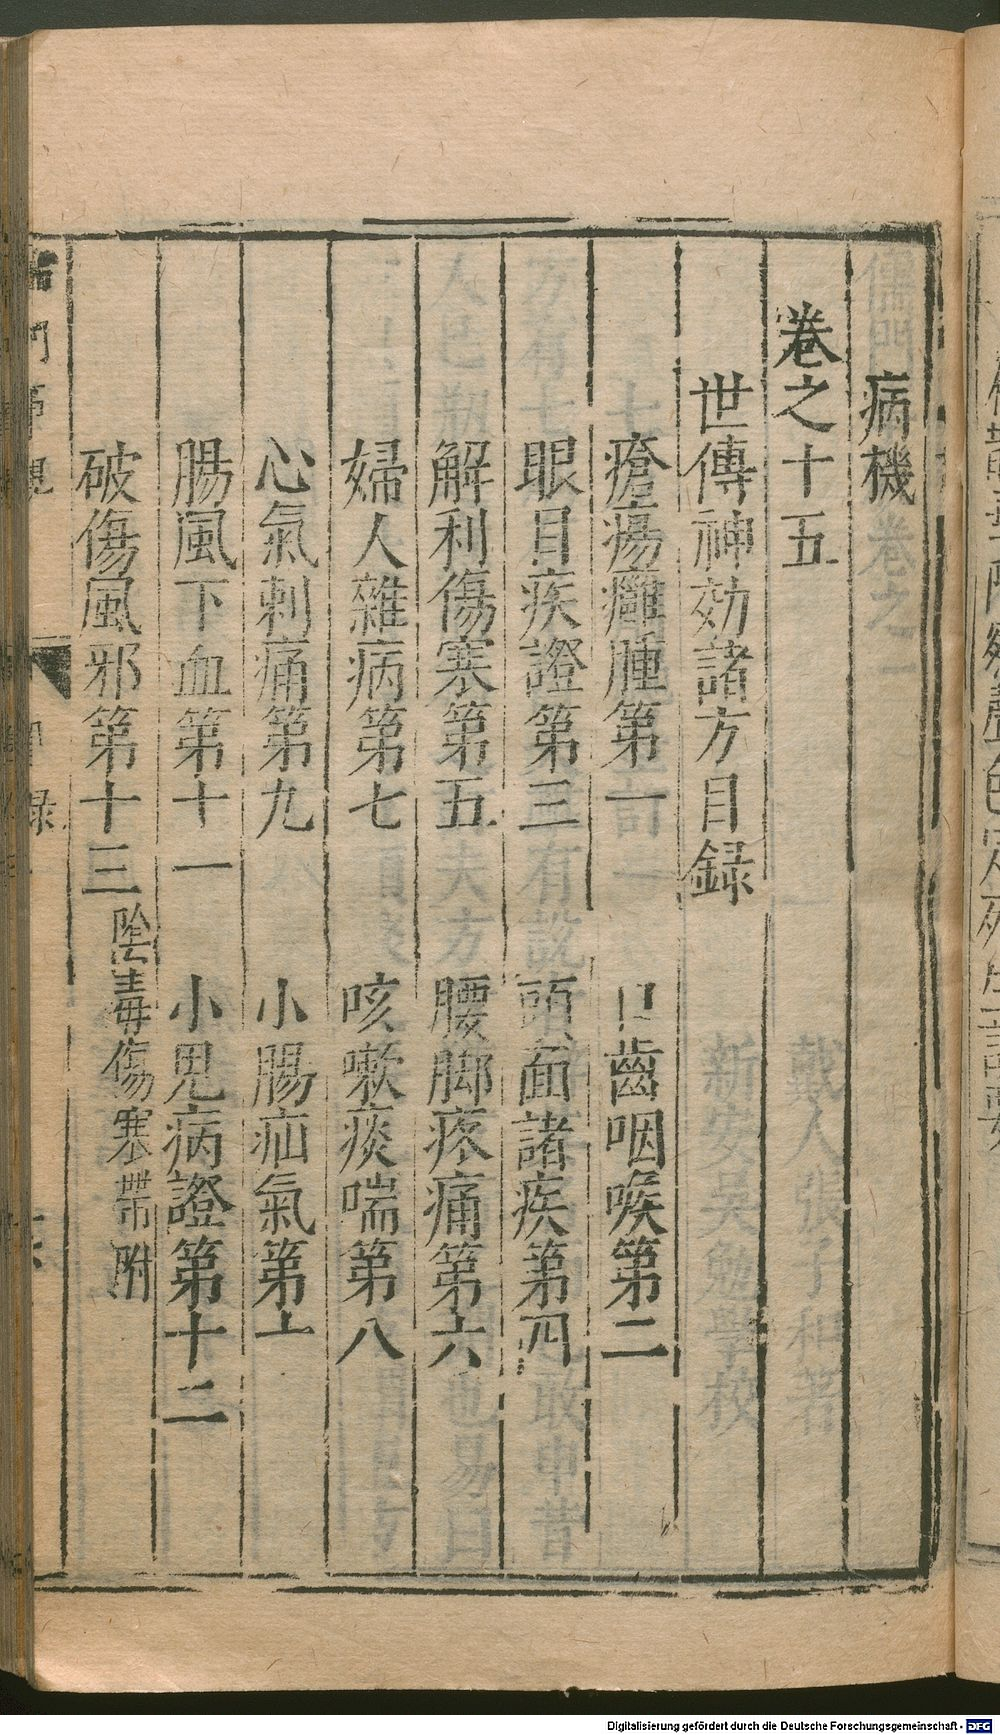 病機
卷之十五
世傳神効諸方目録
瘡瘍癰腫第一　口齒咽喉第二
眼目疾證第三　頭面諸疾第四
解利傷寒第五　腰脚疼痛第六
婦人雜病第七　咳嗽痰喘第八
心氣刺痛第九　小腸疝氣第十
腸風下血第十一　小兒病證第十二
破傷風邪第十三　陰毒傷寒帶附
門事親
目録
Digitalisierung gefördert durch die Deutsche Forschungsgemeinschaft - DFG